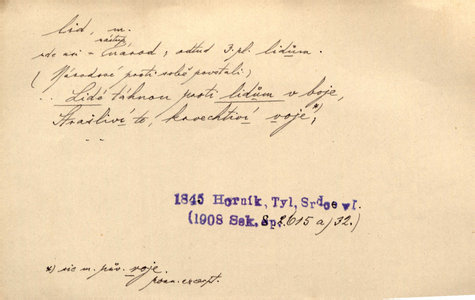 lid, m.
zástup
zde asi = národ; odtud 3. pl. lidům.
(Národové proti sobě povstali)
.. Lidé táhnou proti lidům v boje,
Strašliví to, krvechtiví voje,*)
..
1845 Horník, Tyl, Srdce vl.
(1908 Sek. Sp. 2615 a) 32.)
*) sic m. pův. voje.
pozn. excerpt.